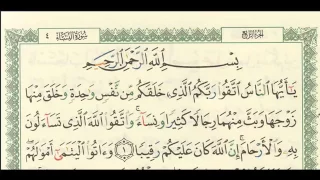 سُورَةُ النِّسَاءِ ٤ الجزء الرابع
بِسْمِ ٱللَّهِ ٱلرَّحْمَٰنِ ٱلرَّحِيمِ
يَٰٓأَيُّهَا ٱلنَّاسُ ٱتَّقُوا۟ رَبَّكُمُ ٱلَّذِى خَلَقَكُم مِّن نَّفْسٍ وَٰحِدَةٍ وَخَلَقَ مِنْهَا
زَوْجَهَا وَبَثَّ مِنْهُمَا رِجَالًا كَثِيرًا وَنِسَآءً ۚ وَٱتَّقُوا۟ ٱللَّهَ ٱلَّذِى تَسَآءَلُونَ
بِهِۦ وَٱلْأَرْحَامَ ۚ إِنَّ ٱللَّهَ كَانَ عَلَيْكُمْ رَقِيبًا ١ وَءَاتُوا۟ ٱلْيَتَٰمَىٰٓ أَمْوَٰلَهُمْ